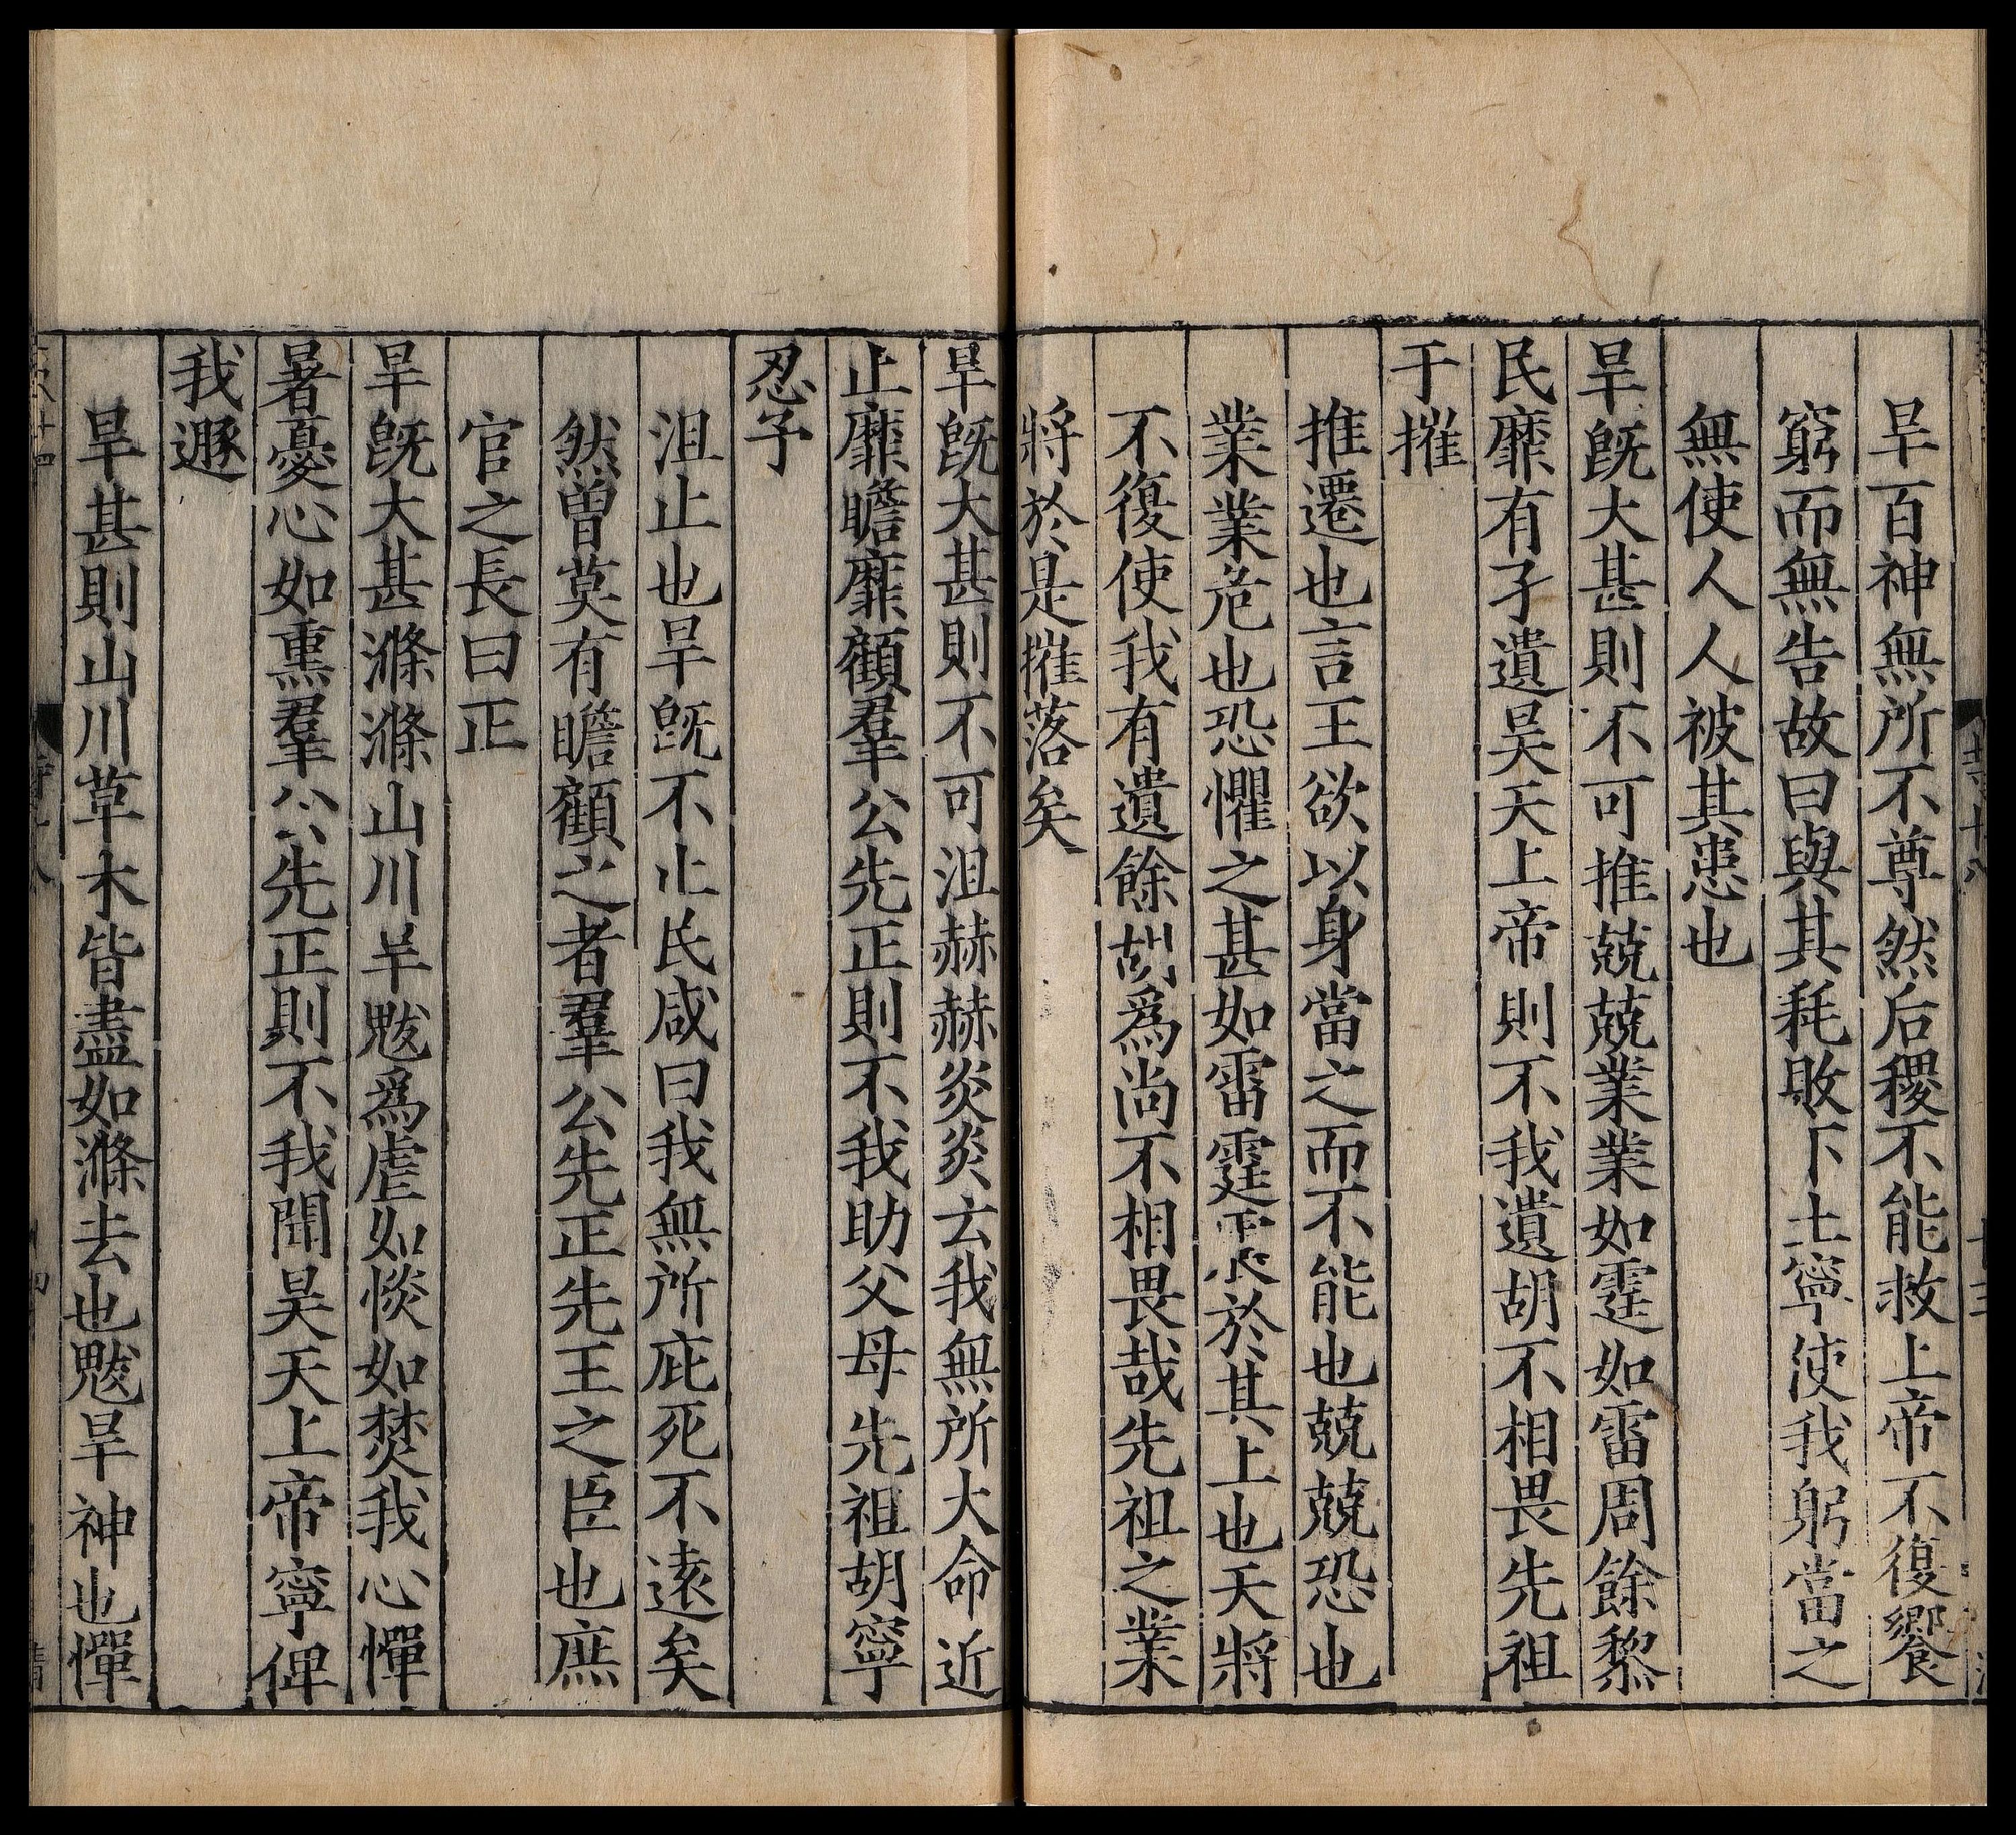 旱百神無所不尊然后稷不能救上帝不復饗
窮而無告故曰與其耗敗下土寧使我躬當之
無使人人被其患也
旱旣大甚則不可推兢兢業業如霆如雷周餘黎
民靡有孑遺昊天上帝則不我遺胡不相畏先祖
于摧
推遷也言王欲以身當之而不能也兢兢恐也
業業危也恐懼之甚如雷霆震於其上也天將
不復使我有遺餘胡爲尚不相畏哉先祖之業
將於是摧落矣
旱旣大甚則不可沮赫赫炎炎云我無所大命近
止靡瞻靡顧羣公先正則不我助父母先祖胡寧
忍予
沮止也旱旣不止民咸曰我無所庇死不遠矣
然曾莫有瞻顧之者羣公先正先王之臣也庶
官之長曰正
旱旣大甚滌滌山川旱魃爲虐如惔如焚我心憚
暑憂心如熏羣公先正則不我聞昊天上帝寧俾
我遯
旱甚則山川草木皆盡如滌去也魃旱神也憚